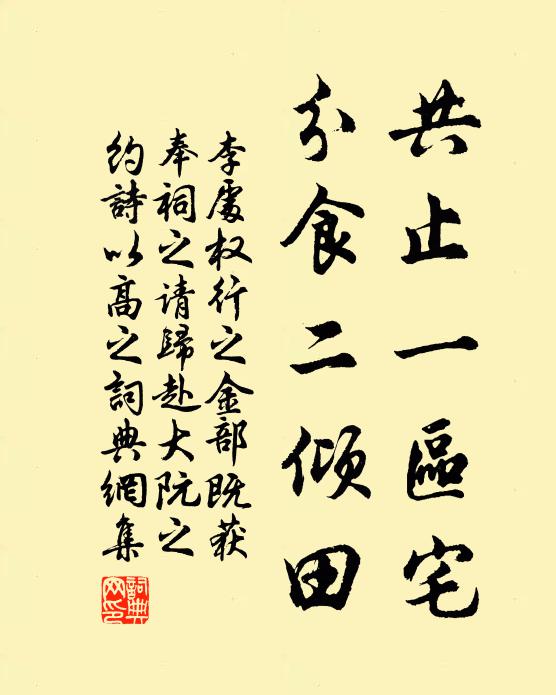 共止一區宅
分食二傾田
李處权行之金部既获
奉祠之请歸赴大阮之
约詩以高之詞典網集
詞典网印